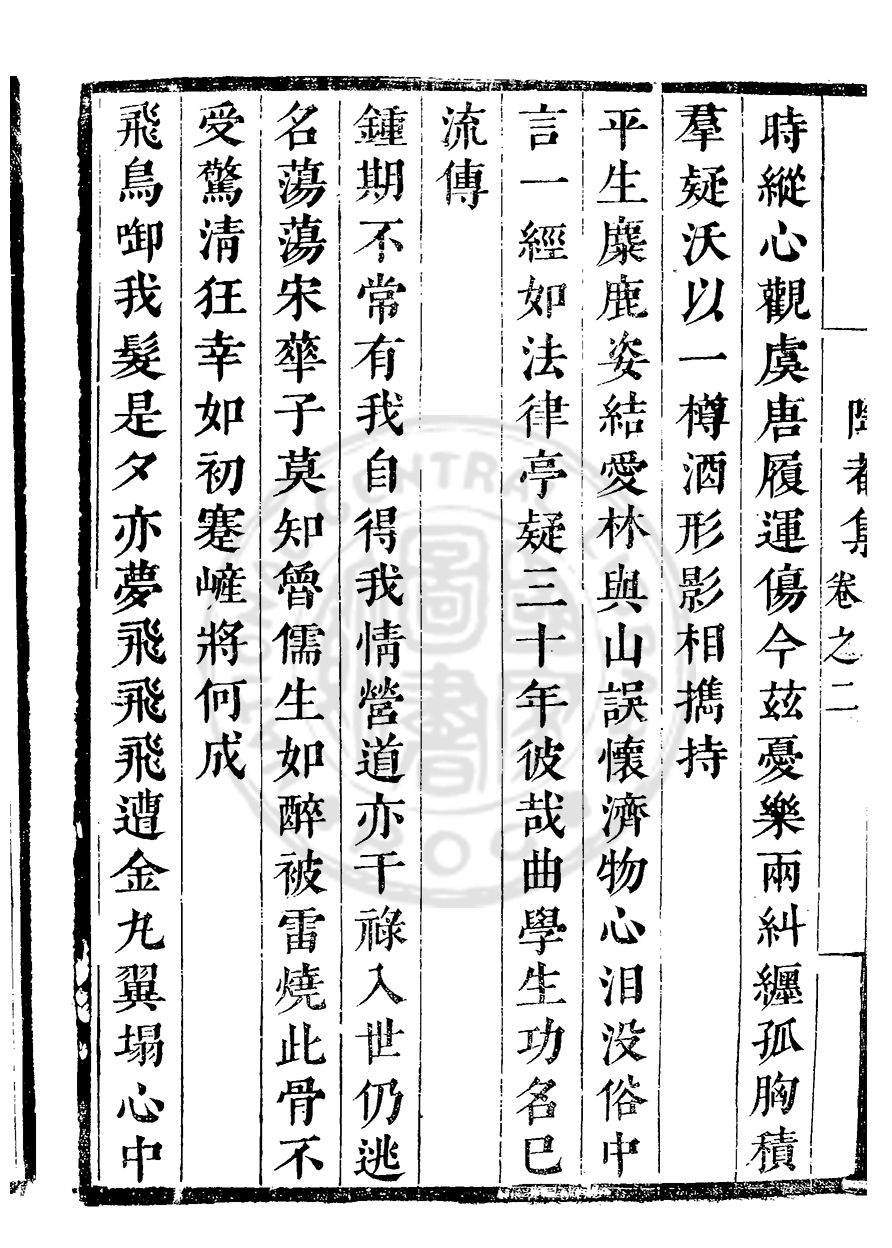 卷之二
時縱心觀虞唐履運傷今茲憂樂兩糾纏孤胸積
羣疑沃以一樽酒形影相攜持
平生麋鹿姿結愛林與山誤懷濟物心汨没俗中
言一經如法律亭疑三十年彼哉曲學生功名巳
流傳
鍾期不常有我自得我情營道亦干祿入世仍逃
名蕩蕩宋華子莫知魯儒生如醉被雷燒此骨不
受驚清狂幸如初蹇嵼將何成
飛鳥啣我髮是夕亦夢飛飛飛遭金丸翼塌心中